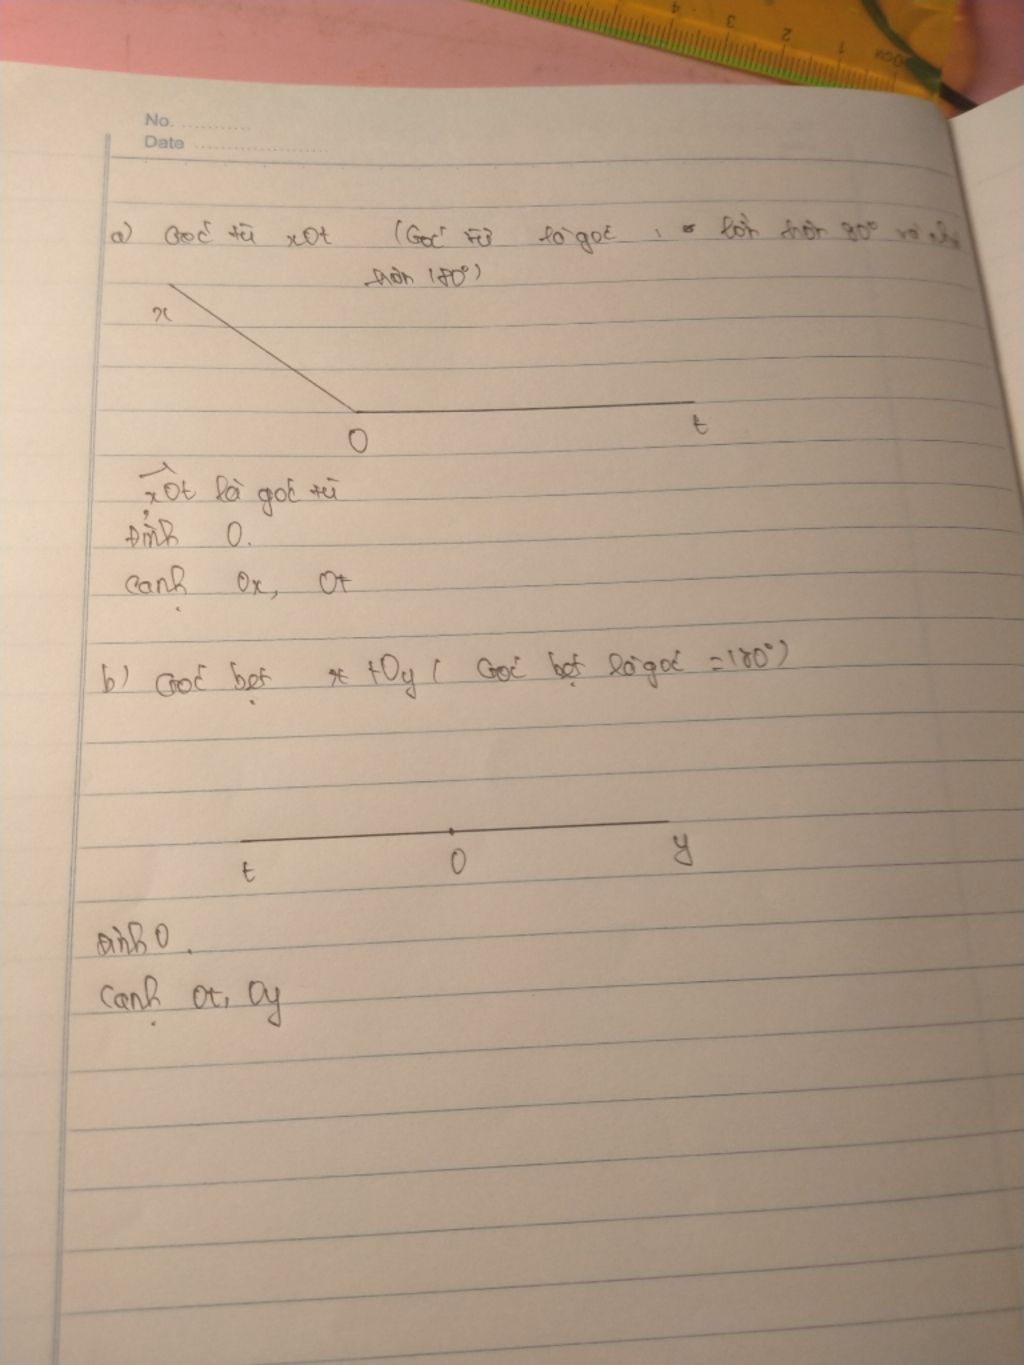 4 3 2 1 0cm
No. ............
Date ......................
a) Góc tù xOt (Góc tù là góc lớn hơn 90° và nhỏ
hơn 180°)
x
O t
xOt là góc tù
Đỉnh O.
Cạnh Ox, Ot
b) Góc bẹt tOy ( Góc bẹt là góc = 180°)
t O y
Đỉnh O.
Cạnh Ot, Oy